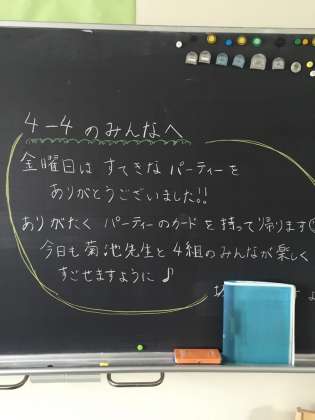 4-4 のみんなへ
金曜日は すてきな パーティーを
ありがとうございました!!
ありがたく パーティーのカードを 持って帰ります
今日も 菊池先生と 4組のみんなが 楽しく
すごせますように♪